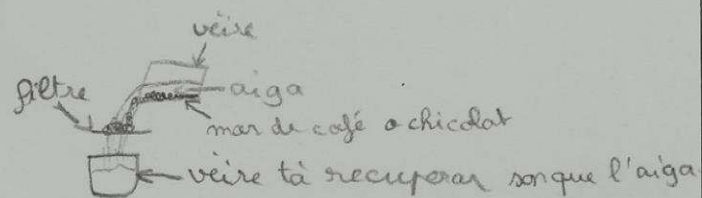 vèire
filtre
aiga
mar de café o chicolat
vèire tà recuperar sonque l'aiga